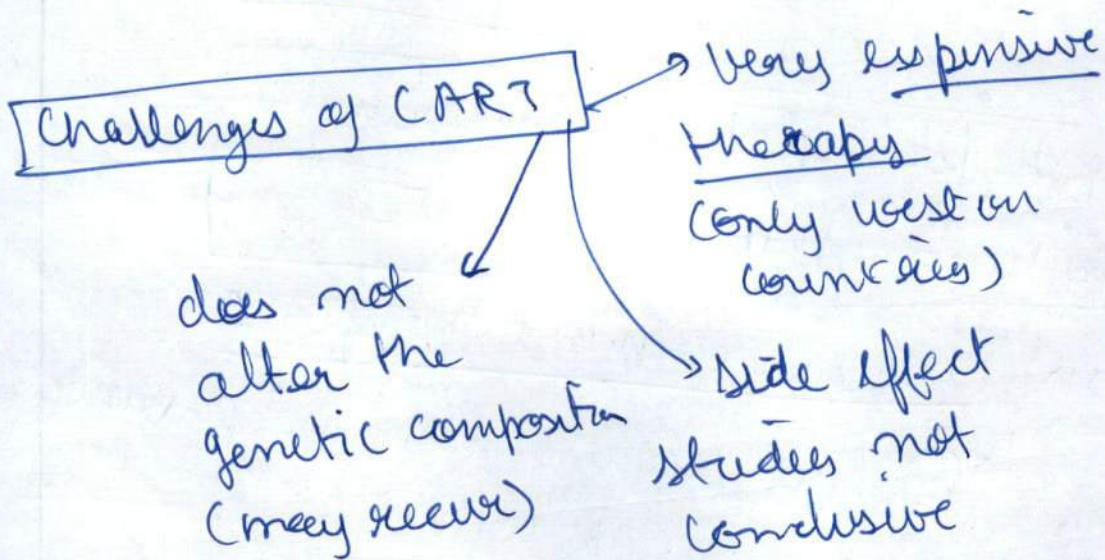 Challenges of CART
Very expensive
therapy
(only western
countries)
does not
alter the
genetic composition
(may recur)
side effect
studies not
conclusive